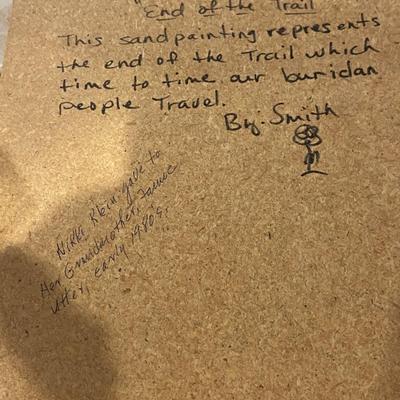 "End of the Trail
This sandpainting represents
the end of the Trail which
time to time our buridan
people Travel.
By: Smith
Nikki Klein gave to
Her Grandmother, Janice
early 1980s.